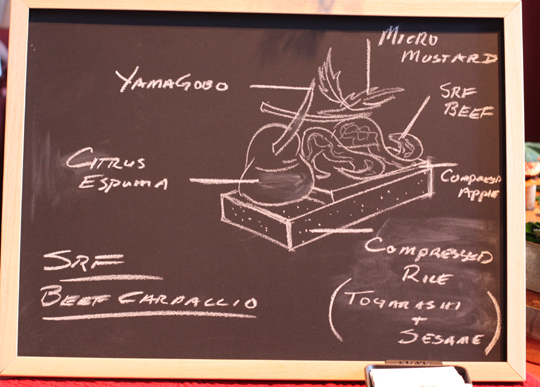 MICRO
MUSTARD
YAMAGOBO
SRF
BEEF
CITRUS
ESPUMA
COMPRESSED
APPLE
COMPRESSED
RICE
(TOGARASHI
+
SESAME)
SRF
BEEF CARPACCIO